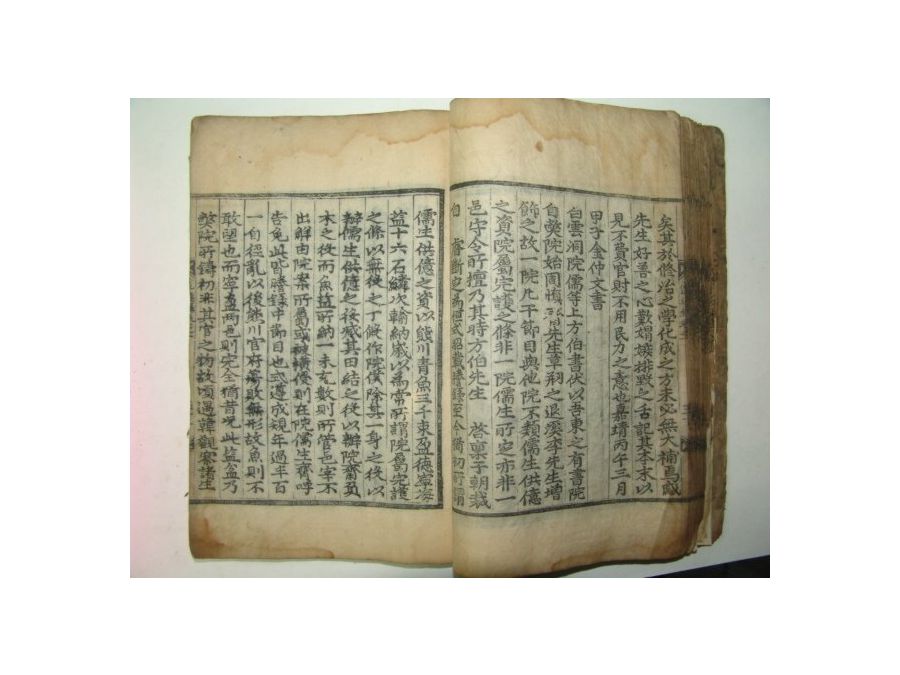 矣其於修治之學化成之方未必無大補焉噫
先生好善之心歎媢嫉排毁之舌記其本末以
見不費官財不用民力之意也嘉靖丙午三月
甲子金仲文書
白雲洞院儒等上方伯書伏以吾東之有書院
自弊院始周愼齋先生草刱之退溪李先生增
飾之故一院凡平節目與他院不類儒生供億
之資院屬完護之條非一院儒生所定亦非一
邑守令所擅乃其時方伯先生 啓稟于朝裁
儒生供億之資以熊川青魚三千束盈德寧海
益十六石鱗次輸納歲以爲常所謂院屬完護
之條以無役之丁俶作院僕除其一身之役以
辦儒生供億之後減其田結之役以辦院齋負
木之役而魚益所納一未充數則所管邑宰不
出解由院案所屬或被橫侵則在院儒生齊呼
告免此皆謄錄中節目也式遵成規年過半百
一自徑亂以後熊川官府蕩敗無形故魚則不
敢望也而寧盈兩邑則完全猶昔況此益盆乃
弊院所鑄初非其官之物故頃過韓觀察諸生